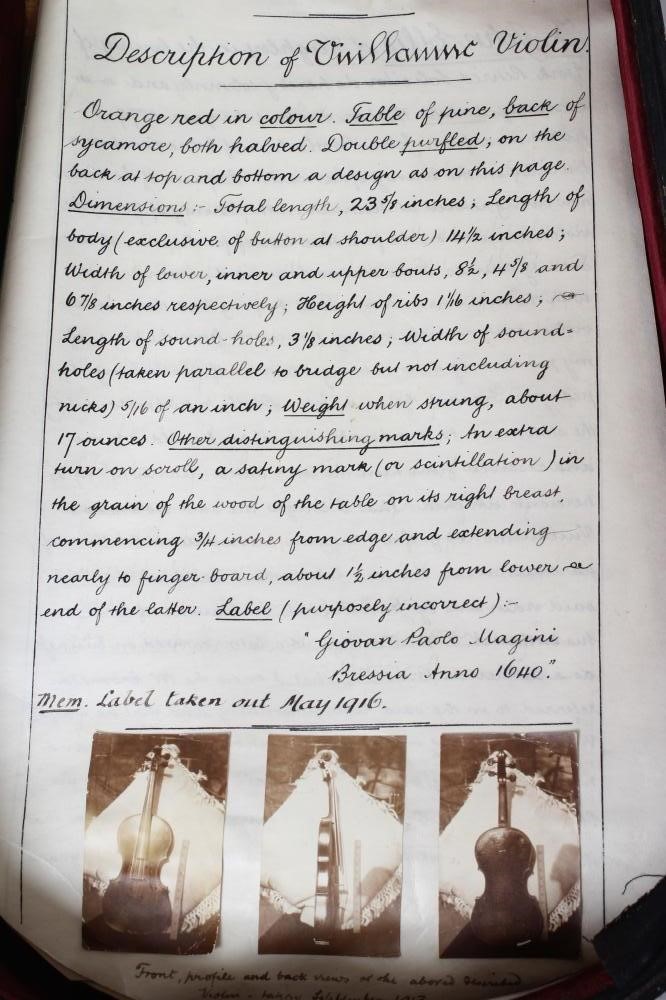 Description of Vuillaume Violin.
Orange red in colour. Table of pine, back of
sycamore, both halved. Double purfled; on the
back at top and bottom a design as on this page.
Dimensions:- Total length, 23 5/8 inches; Length of
body (exclusive of button at shoulder) 14 1/2 inches;
Width of lower, inner and upper bouts, 8 1/2, 4 5/8 and
6 7/8 inches respectively; Height of ribs 1 1/16 inches;
Length of sound-holes, 3 1/8 inches; Width of sound-
holes (taken parallel to bridge but not including
nicks) 5/16 of an inch; Weight when strung, about
17 ounces. Other distinguishing marks; An extra
turn on scroll, a satiny mark (or scintillation) in
the grain of the wood of the table on its right breast,
commencing 3/4 inches from edge and extending
nearly to finger-board, about 1 1/2 inches from lower
end of the latter. Label (purposely incorrect):-
"Giovan Paolo Magini
Bressia Anno 1640."
Mem. Label taken out May 1916.
Front, profile and back views of the above described
Violin - taken September